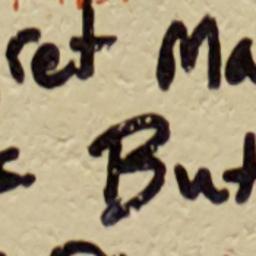 ret Ma
s But